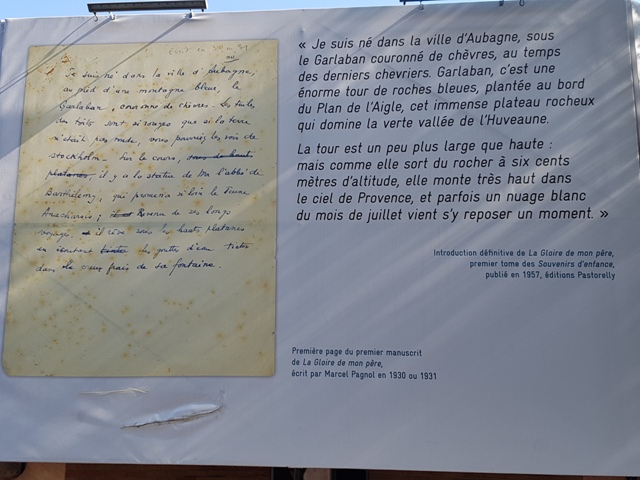 Écrit en 30 ou 31
Je suis né dans la ville d'Aubagne,
au pied d'une montagne bleue, le
Garlaban, couronné de chèvres. Les tuiles
des toits sont si rouges que si la terre
n'était pas ronde, vous pourriez les voir de
Stockholm. Sur le cours, sous de hauts
platanes, il y a la statue de Mr l'abbé de
Barthélemy, qui promena si loin le Jeune
Anacharsis; Revenu de ses longs
voyages, il rêve sous les hauts platanes
en écoutant les gouttes d'eau
dans le frais de sa fontaine.
« Je suis né dans la ville d'Aubagne, sous
le Garlaban couronné de chèvres, au temps
des derniers chevriers. Garlaban, c'est une
énorme tour de roches bleues, plantée au bord
du Plan de l'Aigle, cet immense plateau rocheux
qui domine la verte vallée de l'Huveaune.
La tour est un peu plus large que haute :
mais comme elle sort du rocher à six cents
mètres d'altitude, elle monte très haut dans
le ciel de Provence, et parfois un nuage blanc
du mois de juillet vient s'y reposer un moment. »
Introduction définitive de La Gloire de mon père,
premier tome des Souvenirs d'enfance,
publié en 1957, éditions Pastorelly
Première page du premier manuscrit
de La Gloire de mon père,
écrit par Marcel Pagnol en 1930 ou 1931